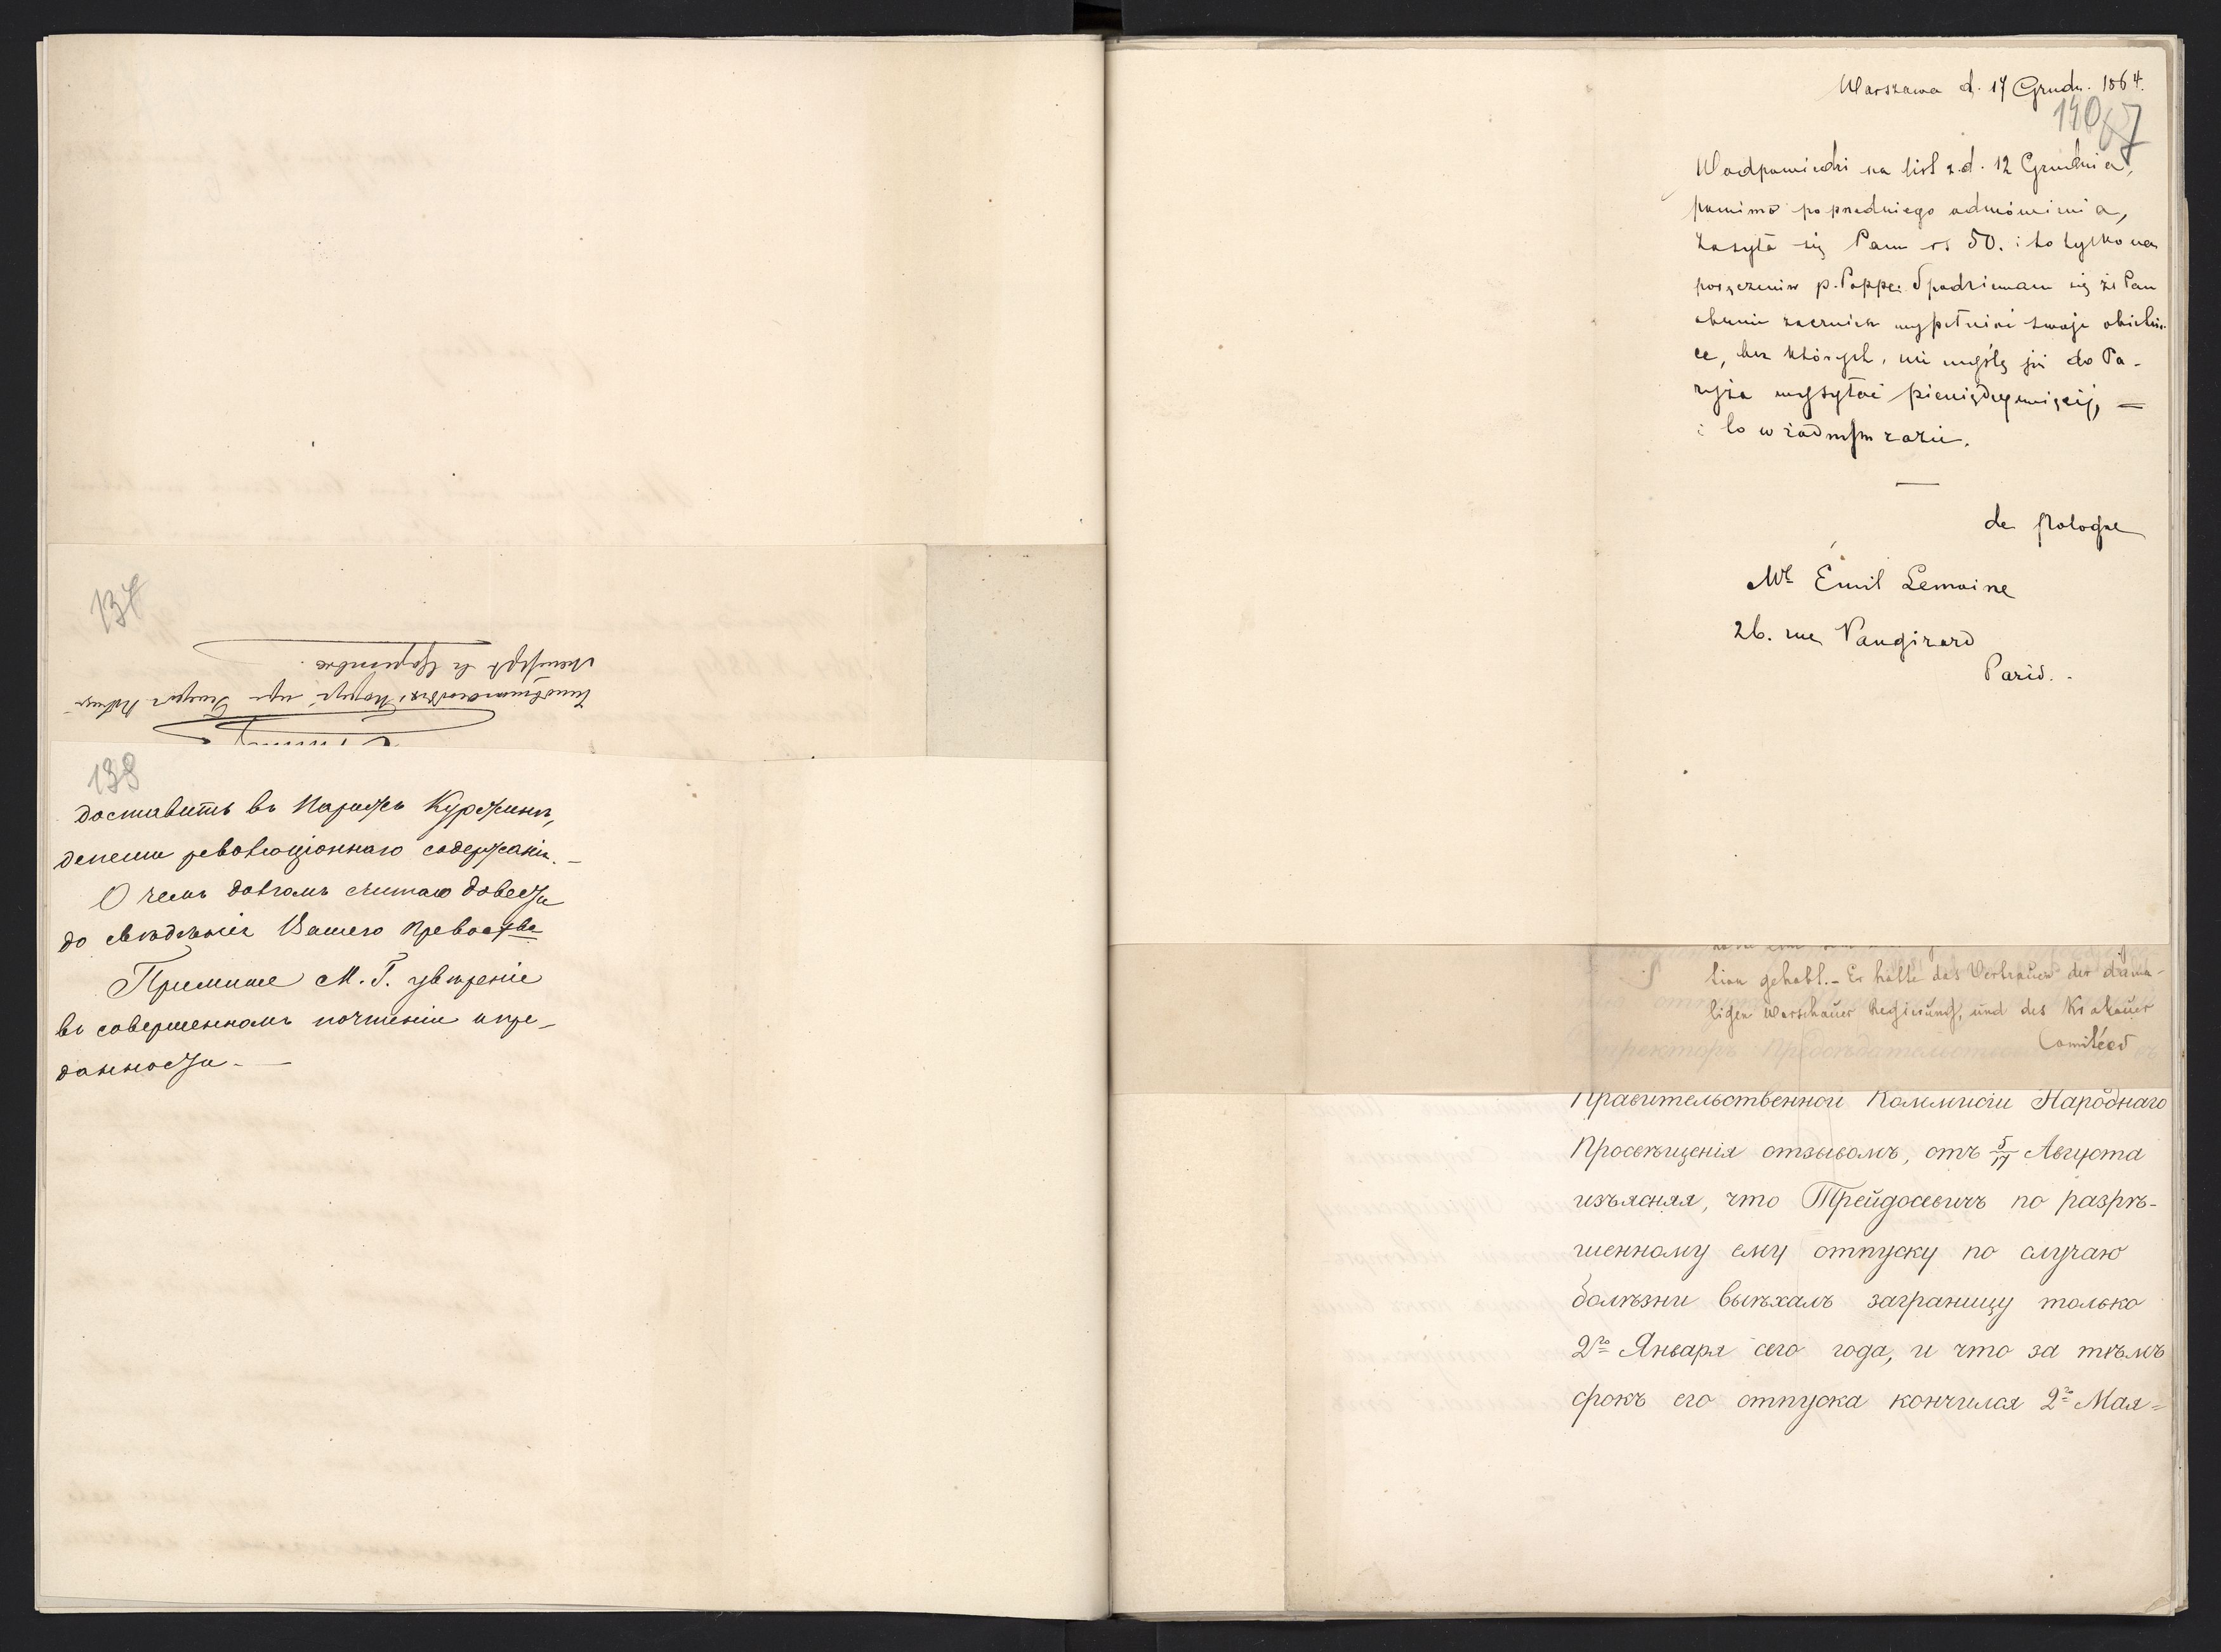 137
138
доставить въ Парижъ Куржинъ,
депеши революціоннаго содержанія.—
О чемъ долгомъ считаю довести
до свѣдѣнія Вашего Превоства
Примите М. Г. увѣреніе
въ совершенномъ почтеніи и пре-
данности.—
Warszawa d. 17 Grudn. 1864.
140
67
W odpowiedzi na list z d. 12 Grudnia,
pomimo poprzedniego odmówienia,
zasyła się Panu rs 50. i to tylko na
poręczenie p. Poppe. Spodziewam się że Pan
zechce wypełnić swoje obietni-
ce, bez których, nie myślę już do Pa-
ryża wysyłać pieniędzy więcej, —
i to w żadnym razie.
de Pologne
Mr Émil Lemoine
26. rue Vaugirard
Paris.
tion gehabt. – Er hatte das Vertrauen der dama-
ligen Warschauer Regierung, und des Krakauer
Comitées
Правительственной Коммисіи Народнаго
Просвѣщенія отзывомъ, отъ 5/17 Августа
изъясняя, что Трейдосевичъ по разрѣ-
шенному ему отпуску по случаю
болѣзни выѣхалъ заграницу только
2го Января сего года, и что за тѣмъ
срокъ его отпуска кончился 2го Мая=